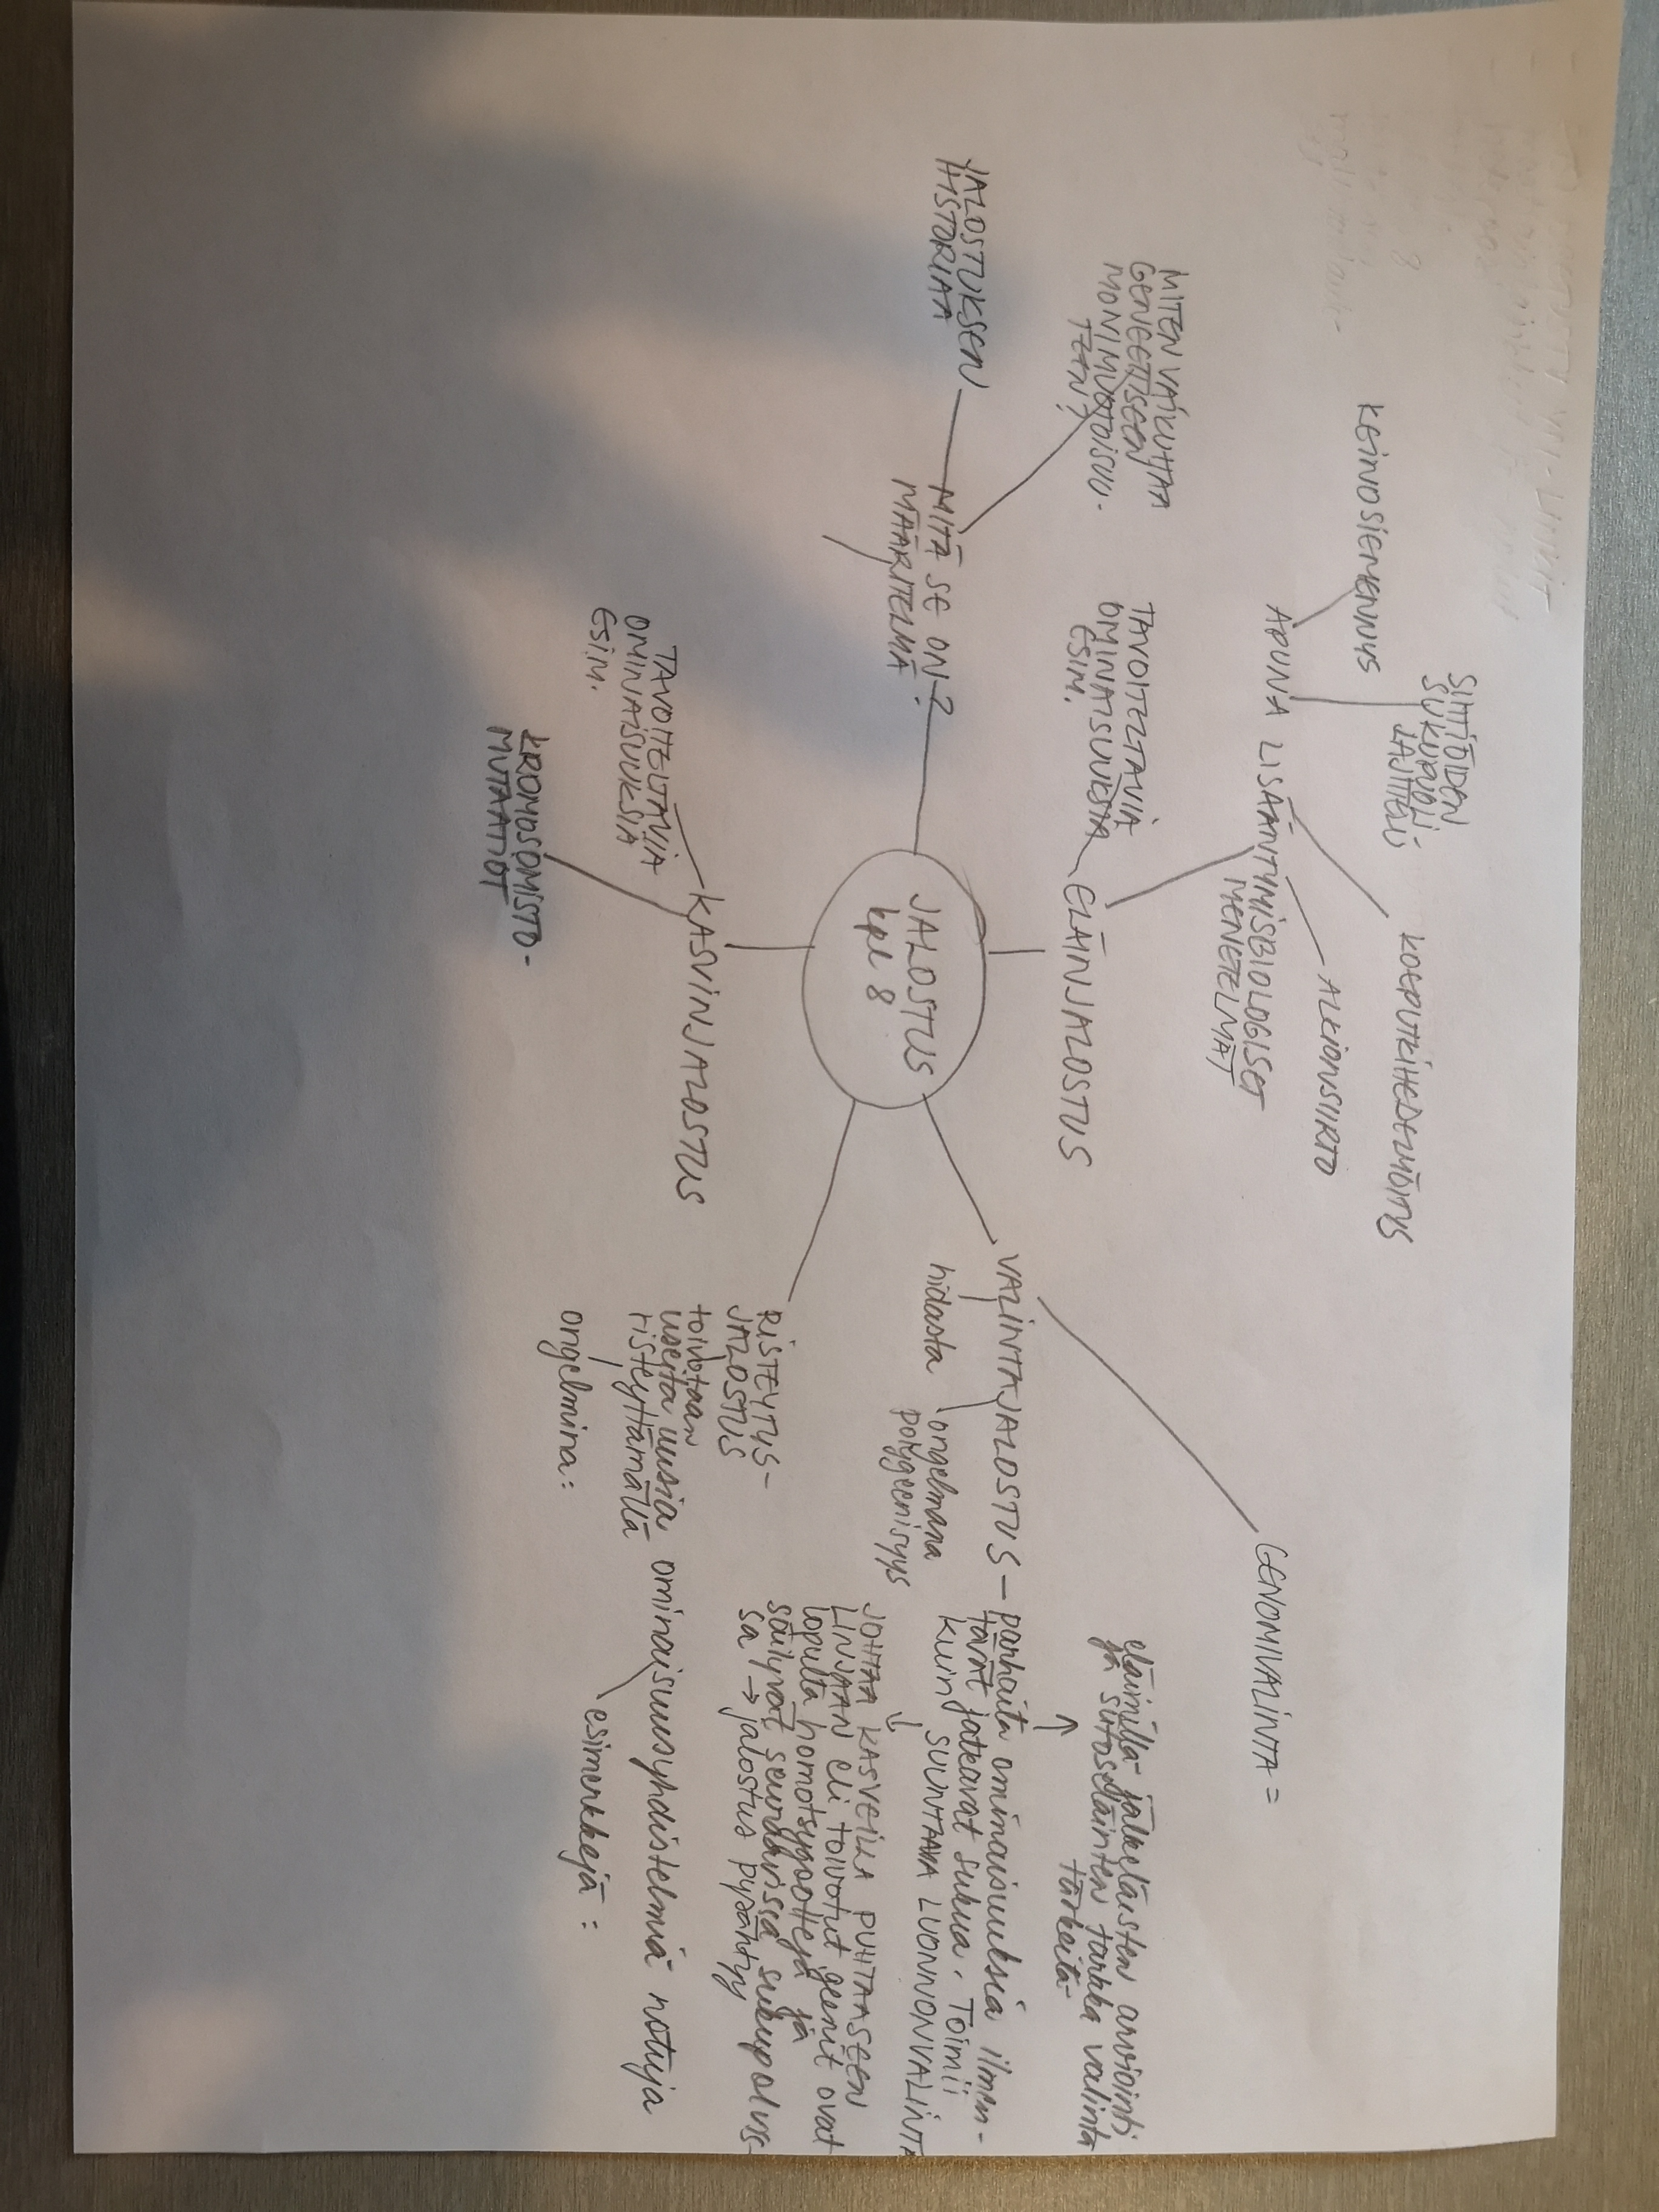 JALOSTUS
kpl 8
MITÄ SE ON?
MÄÄRITELMÄ
JALOSTUKSEN
HISTORIAA
MITEN VAIKUTTAA
GENEETTISEEN
MONIMUOTOISUU-
TEEN?
ELÄINJALOSTUS
TAVOITELTAVIA
OMINAISUUKSIA
ESIM.
APUNA LISÄÄNTYMISBIOLOGISET
MENETELMÄT
KEINOSIEMENNYS
SIITTIÖIDEN
SUKUPUOLI-
LAJITTELU
KOEPUTKIHEDELMÖITYS
ALKIONSIIRTO
VALINTAJALOSTUS – parhaita ominaisuuksia ilmen-
tävät jatkavat sukua. Toimii
kuin SUUNTAAVA LUONNONVALINTA
hidasta
ongelmana
polygeenisyys
GENOMIVALINTA =
eläimillä jälkeläisten arviointi
ja siitoseläinten tarkka valinta
tärkeitä
JOHTAA KASVEILLA PUHTAASEEN
LINJAAN eli TOIVOTUT geenit ovat
lopulta homotsygootteja ja
säilyvät seuraavissa sukupolvis-
sa → jalostus pysähtyy
RISTEYTYS-
JALOSTUS
toivotaan
useita uusia ominaisuusyhdistelmä notuja
risteyttämällä
ongelmina:
esimerkkejä:
KASVINJALOSTUS
TAVOITELTAVIA
OMINAISUUKSIA
ESIM.
KROMOSOMISTO-
MUTAATIOT